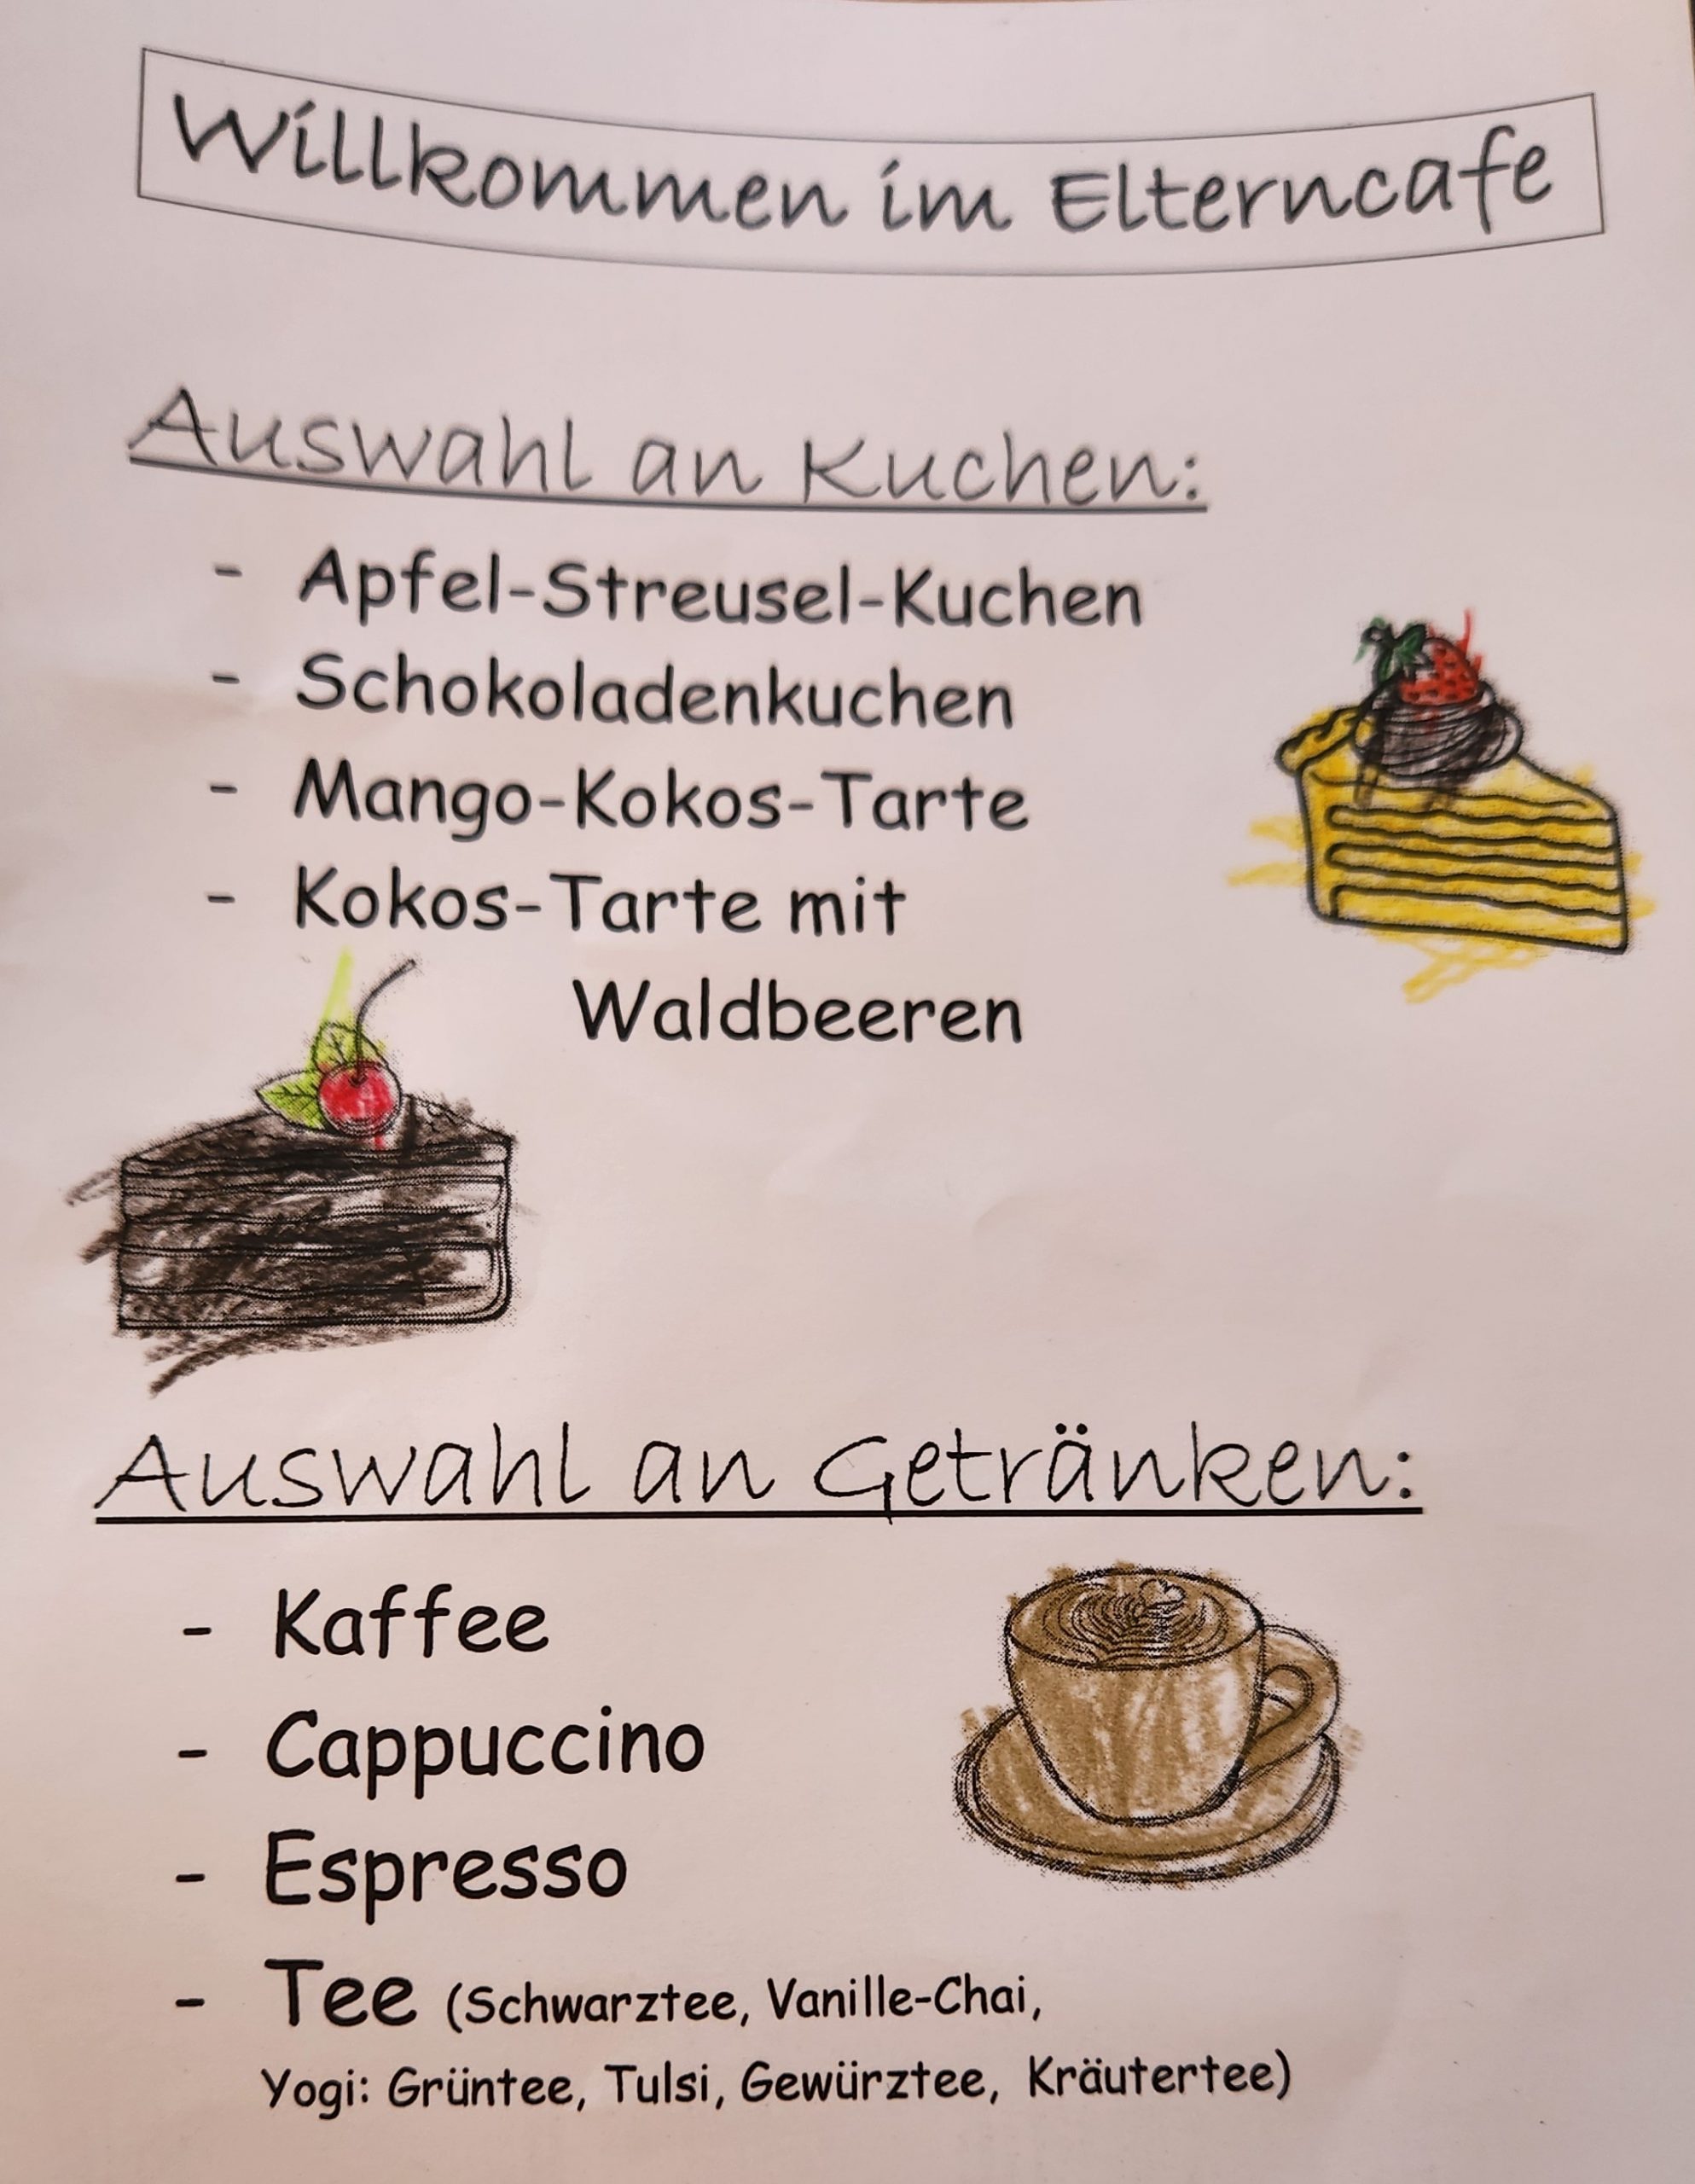 Willkommen im Elterncafe
Auswahl an Kuchen:
- Apfel-Streusel-Kuchen
- Schokoladenkuchen
- Mango-Kokos-Tarte
- Kokos-Tarte mit
Waldbeeren
Auswahl an Getränken:
- Kaffee
- Cappuccino
- Espresso
- Tee (Schwarztee, Vanille-Chai,
Yogi: Grüntee, Tulsi, Gewürztee, Kräutertee)